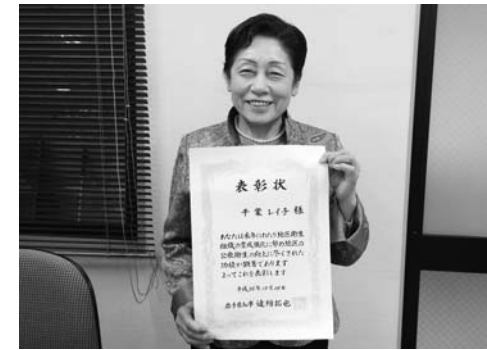 表彰状
千葉レイ子 様
あなたは永年にわたり地区衛生
組織の育成強化に努め地区の
公衆衛生の向上に尽くされた
功績が顕著であります
よってこれを表彰します
平成 年 月 日
岩手県知事 達増拓也